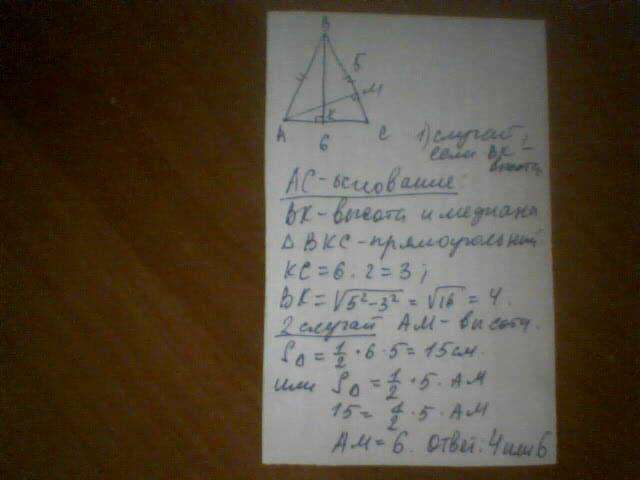 B
5
M
A K C
6
1) случай,
если BK -
высота
AC - основание:
BK - высота и медиана
△ BKC - прямоугольный
KC = 6 : 2 = 3;
BK = √5²-3² = √16 = 4.
2 случай AM - высота.
S△ = 1/2 · 6 · 5 = 15 см.
или S△ = 1/2 · 5 · AM
15 = 1/2 · 5 · AM
AM = 6. Ответ: 4 или 6